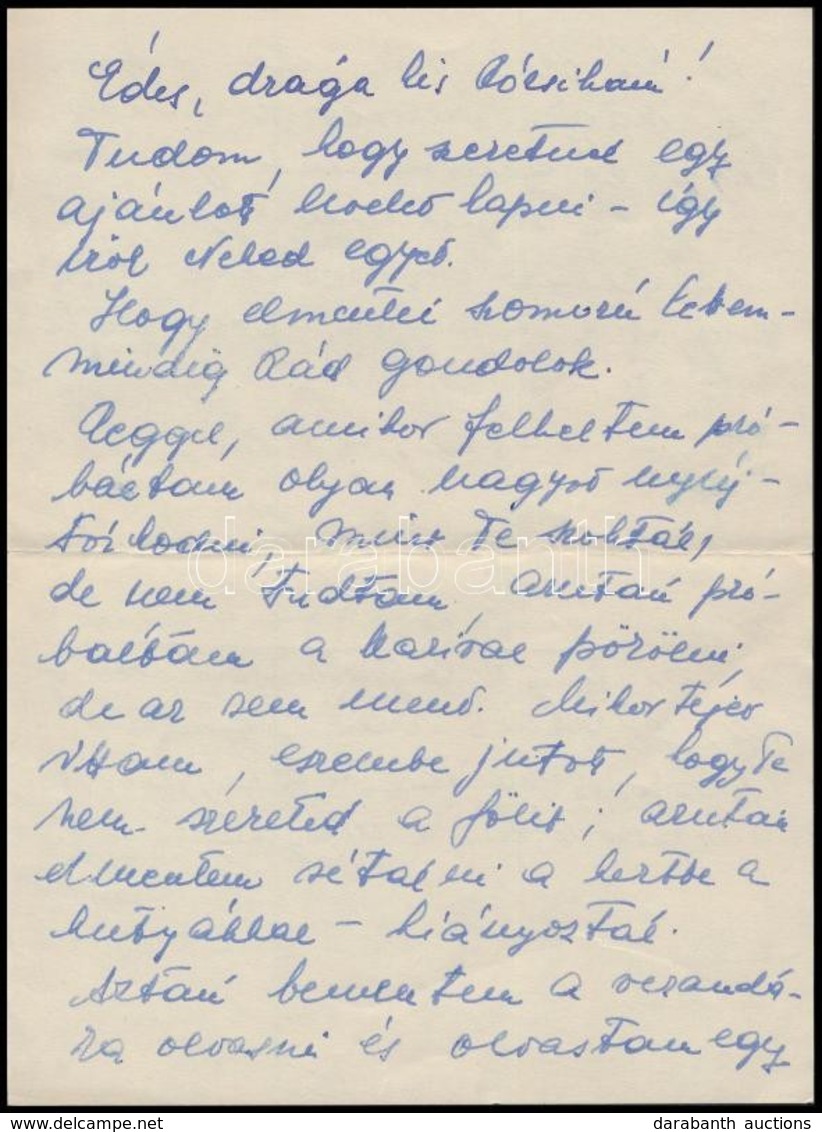 Édes, drága kis Rócsikám!
Tudom, hogy szeretnél egy
ajánlott levelet kapni – így
írok Neked egyet.
Hogy elmentél szomorú lettem –
mindig Rád gondolok.
Reggel, amikor felkeltem pró-
báltam olyan nagyot nyúj-
tózkodni, mint Te szoktál,
de nem tudtam, azután pró-
báltam a Marival pörölni,
de az sem ment. Mikor tejet
ittam, eszembe jutott, hogy Te
nem szereted a fölit; azután
elmentem sétálni a kertbe a
kutyákkal – hiányoztál.
Aztán bementem a verandá-
ra olvasni és olvastam egy
darabanth
darabanth auctions